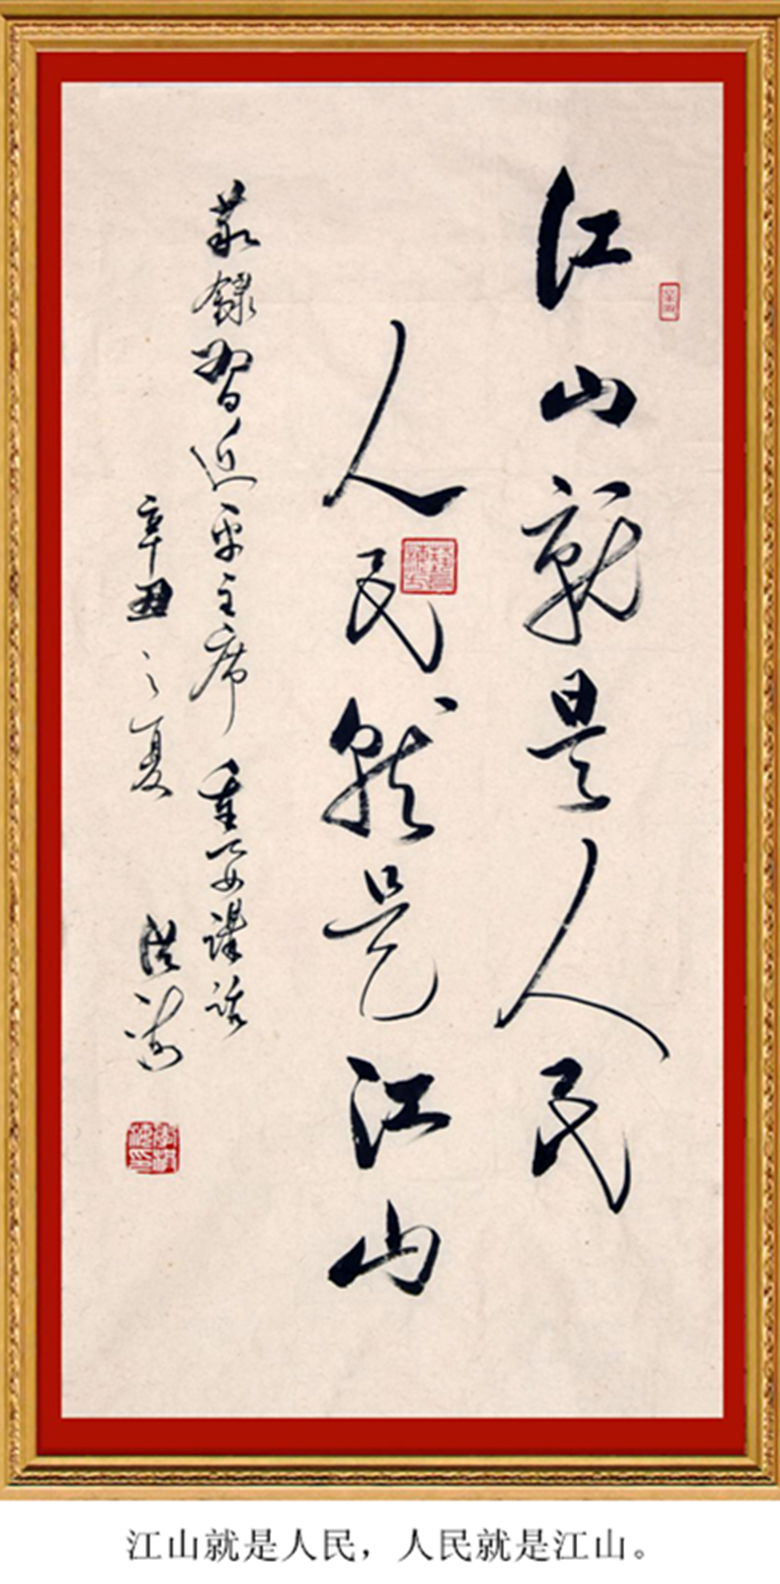 江山就是人民
人民就是江山
敬錄習近平主席重要講話
辛丑之夏 洪
江山就是人民，人民就是江山。